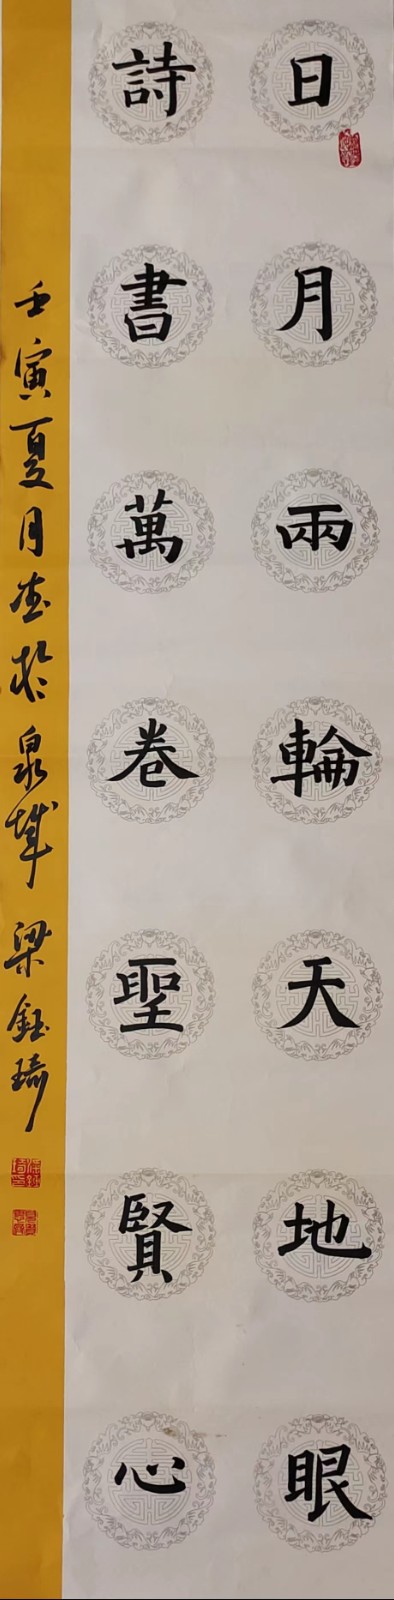 日月兩輪天地眼
詩書萬卷聖賢心
壬寅夏月書於泉城 梁鈺琦